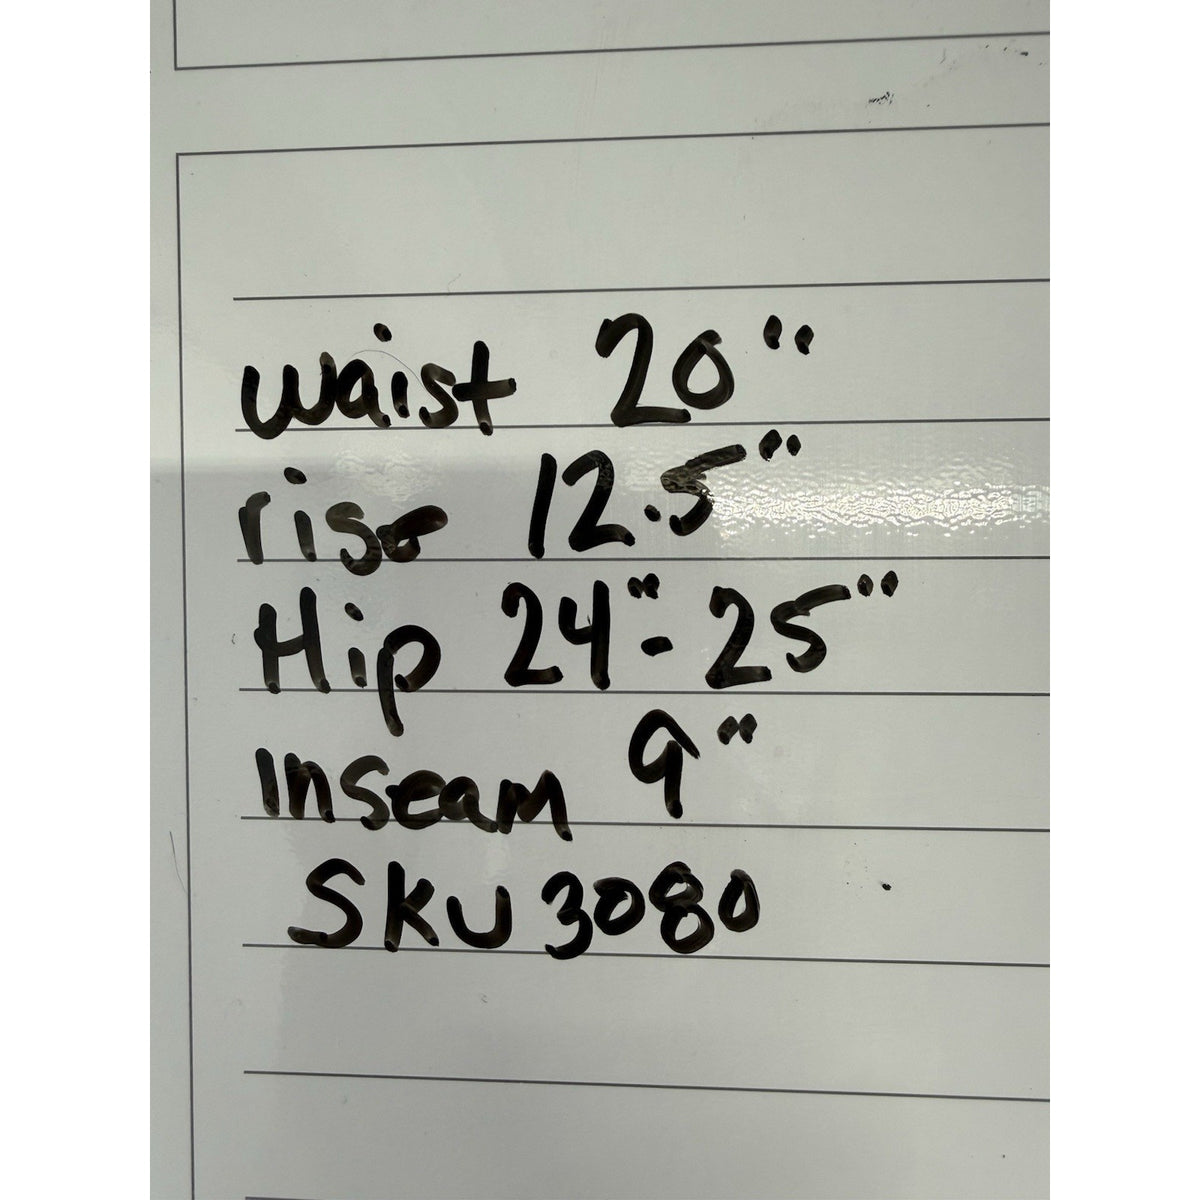 waist 20"
rise 12.5"
Hip 24"-25"
Inseam 9"
SKU 3080